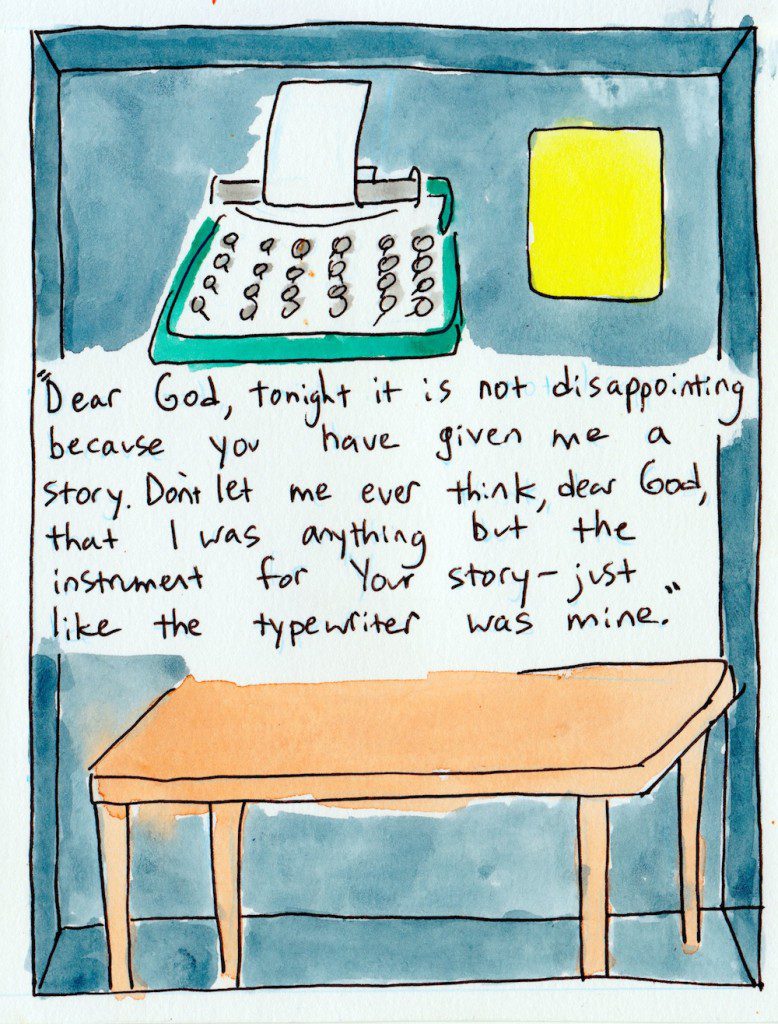 "Dear God, tonight it is not disappointing
because you have given me a
story. Don't let me ever think, dear God,
that I was anything but the
instrument for Your story - just
like the typewriter was mine."